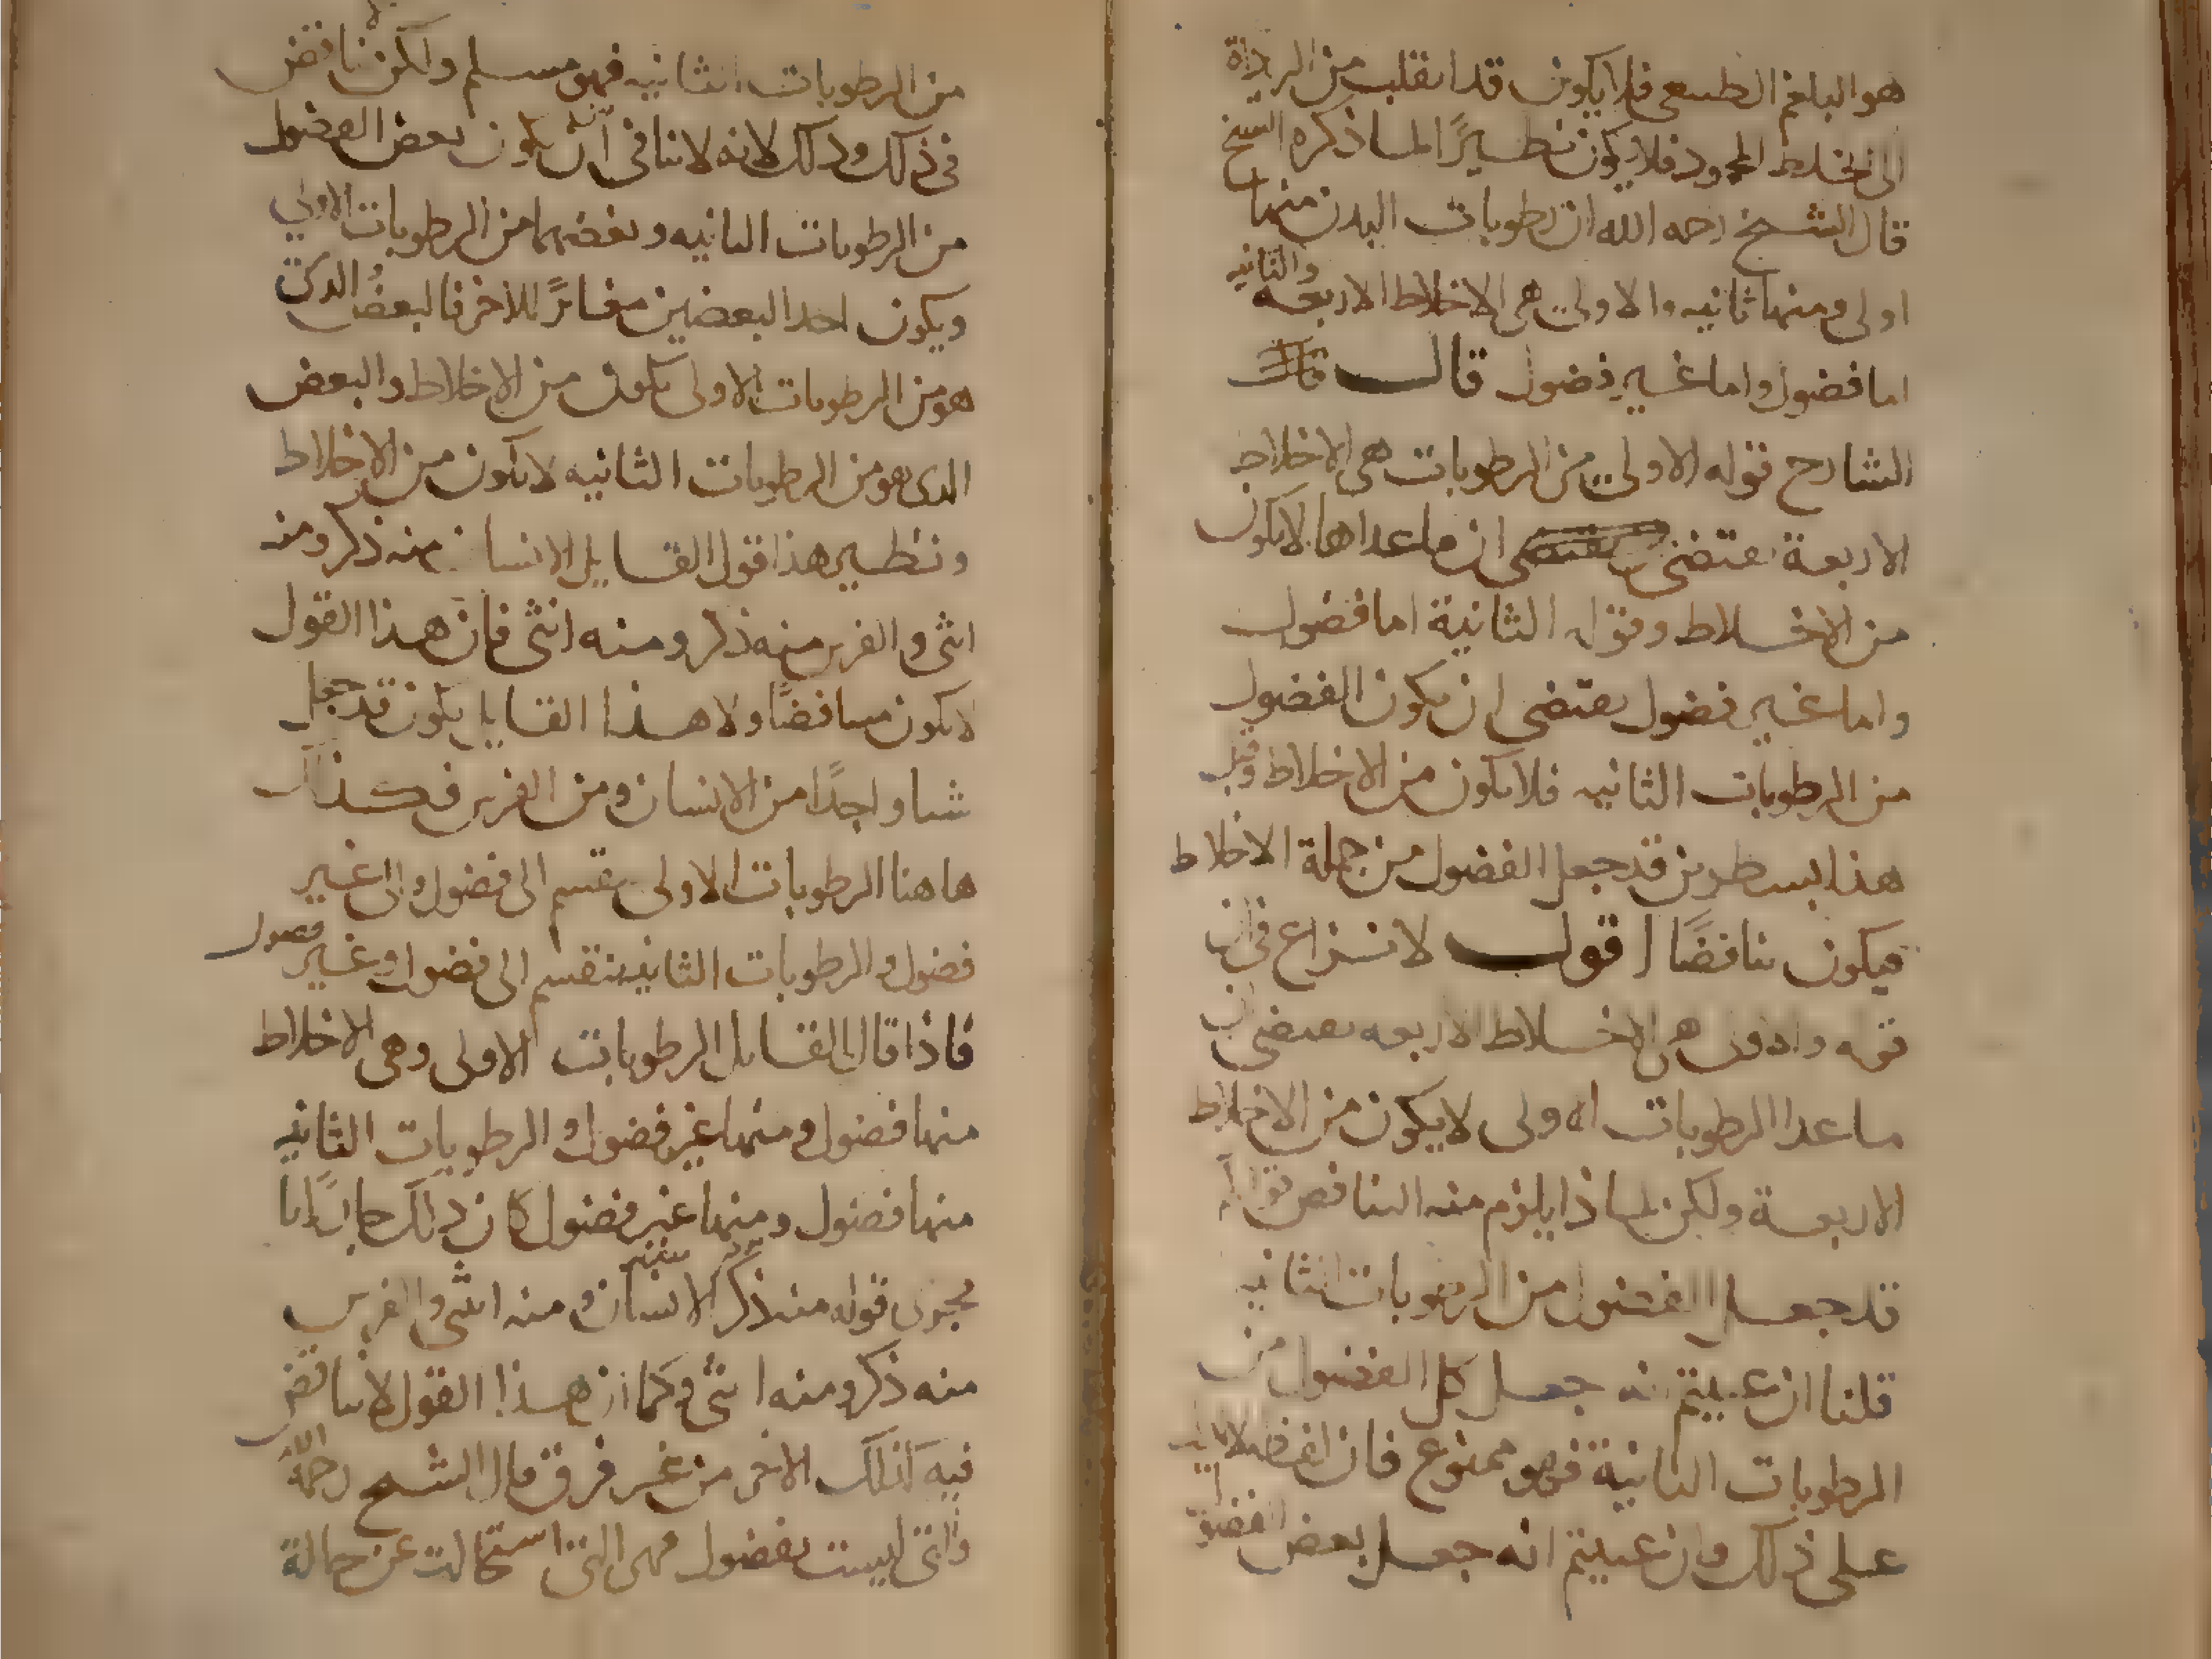 هو البلغم الطبيعى فلا يكون قد انقلب من الرداة
الى الخلط المحمود فلا يكون نظيرًا لما ذكره الشيخ
قال الشيخ رحمه الله ان رطوبات البدن منها
اولى ومنها ثانيه والاولى هى الاخلاط الاربعه والثانيه
اما فضول واما غير فضول قال
الشارح قوله الاولى من الرطوبات هى الاخلاط
الاربعة يقتضى ان ما عداها لا يكون
من الاخلاط وقوله الثانية اما فضول
واما غير فضول يقتضى ان يكون الفضول
من الرطوبات الثانيه فلا يكون من الاخلاط وقبل
هذا بسطرين قد جعل الفضول من جملة الاخلاط
فيكون تناقضًا اقول لا نزاع فى ان
قوله والاولى هى الاخلاط الاربعه يقتضى ان
ما عدا الرطوبات الاولى لا يكون من الاخلاط
الاربعة ولكن لماذا يلزم منه التناقض
قد جعل الفضول من الرطوبات الثانيه
قلنا ان عنيتم انه جعل كل الفضول من
الرطوبات الثانية فهو ممنوع فان
على ذلك وان عنيتم انه جعل بعض الفضول
من الرطوبات الثانيه فهو مسلم ولكن لا تناقض
فى ذلك وذلك لانه لا تنافى ان يكون بعض الفضول
من الرطوبات الثانيه وبعضها من الرطوبات الاولى
ويكون احد البعضين مغايرًا للاخر فالبعضُ الذى
هو من الرطوبات الاولى يكون من الاخلاط والبعض
الذى هو من الرطوبات الثانيه لا يكون من الاخلاط
ونظير هذا قول القايل الانسان منه ذكر ومنه
انثى والفرس منه ذكر ومنه انثى فان هذا القول
لا يكون متناقضًا ولا هذا القايل يكون قد جعل
شيا واحدًا من الانسان ومن الفرس فكذلك
هاهنا الرطوبات الاولى ينقسم الى فضول والى غير
فضول والرطوبات الثانيه ينقسم الى فضول وغير فضول
فاذا قال القايل الرطوبات الاولى وهى الاخلاط
منها فضول ومنها غير فضول والرطوبات الثانيه
منها فضول ومنها غير فضول كان ذلك جاريًا
مجرى قوله منه ذكر الانسان ومنه انثى والفرس
منه ذكر ومنه انثى وكما ان هذا القول لا تناقض
فيه كذلك الاخر من غير فرق قال الشيخ رحمه الله
والتى ليست بفضول فهى التى استحالت عن حالة